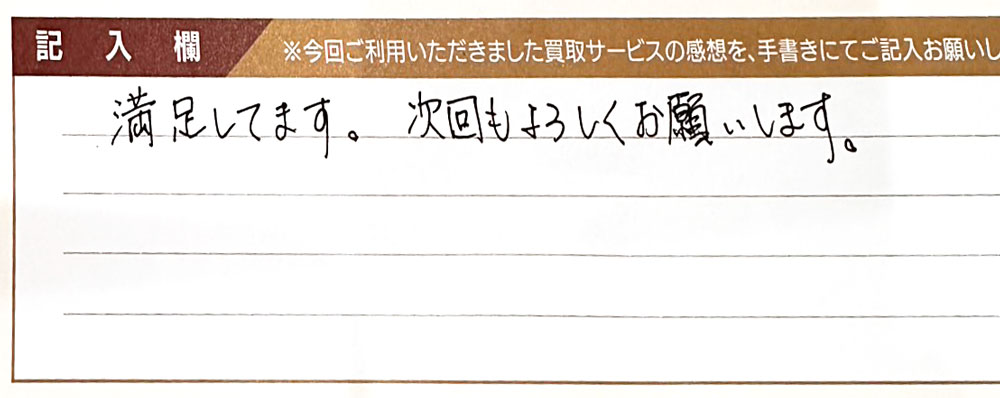 記入欄
※今回ご利用いただきました買取サービスの感想を、手書きにてご記入お願いし
満足してます。次回もよろしくお願いします。